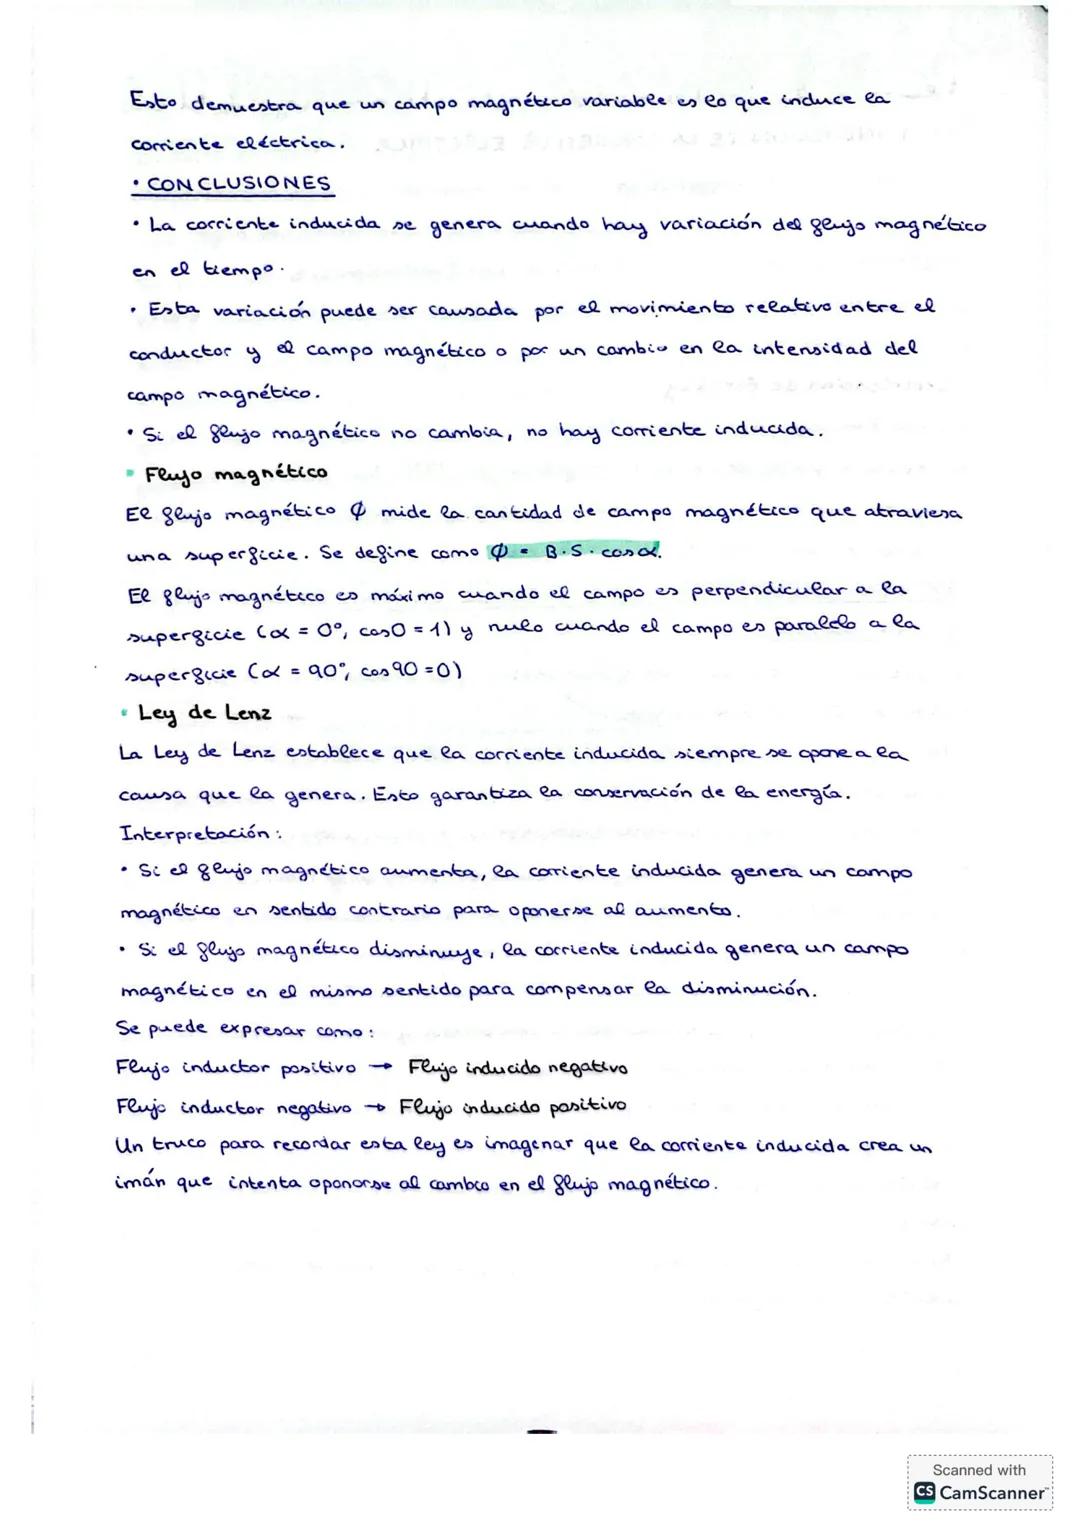 Esto demuestra que un campo magnético variable es lo que induce la
corriente eléctrica.
• CONCLUSIONES
• La corriente inducida se genera cuando hay variación del flujo magnético
en el tiempo.
• Esta variación puede ser causada por el movimiento relativo entre el
conductor y el campo magnético o por un cambio en la intensidad del
campo magnético.
• Si el flujo magnético no cambia, no hay corriente inducida.
• Flujo magnético
El flujo magnético Φ mide la cantidad de campo magnético que atraviesa
una superficie. Se define como Φ = B·S·cosα.
El flujo magnético es máximo cuando el campo es perpendicular a la
superficie (α = 0º, cos0 = 1) y nulo cuando el campo es paralelo a la
superficie (α = 90º, cos90 = 0)
• Ley de Lenz
La Ley de Lenz establece que la corriente inducida siempre se opone a la
causa que la genera. Esto garantiza la conservación de la energía.
Interpretación:
• Si el flujo magnético aumenta, la corriente inducida genera un campo
magnético en sentido contrario para oponerse al aumento.
• Si el flujo magnético disminuye, la corriente inducida genera un campo
magnético en el mismo sentido para compensar la disminución.
Se puede expresar como:
Flujo inductor positivo → Flujo inducido negativo
Flujo inductor negativo → Flujo inducido positivo
Un truco para recordar esta ley es imagenar que la corriente inducida crea un
imán que intenta oponorse al cambio en el flujo magnético.
Scanned with
CS CamScanner